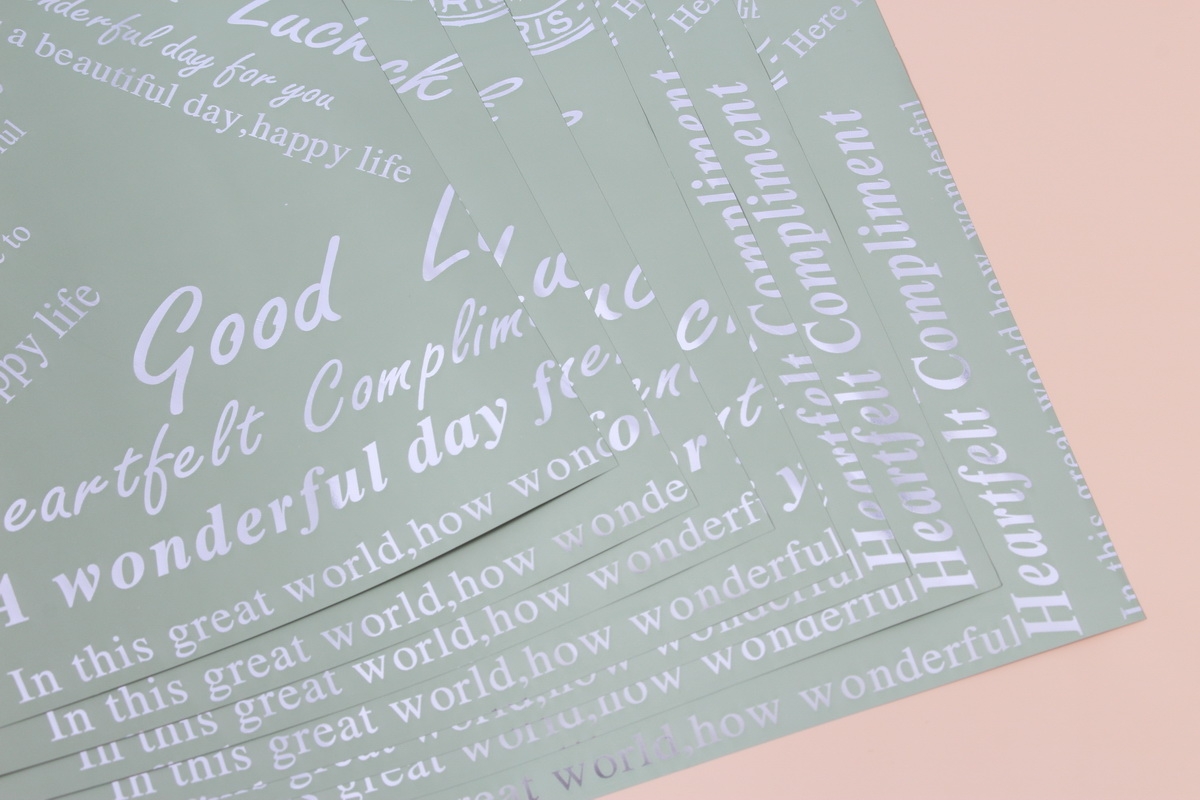 Luck
wonderful day for you
a beautiful day,happy life
life
Good
Complim
A wonderful day
In this great world,how
In this great world,how wonde
In this great world,how wonderf
In this great world,how wonderful
great world,how wonderful
world,how wonderful
Compliment
Heartfelt Compliment
Heartfelt Compliment
Heartfelt Compliment
In this great world how wonderful
Here